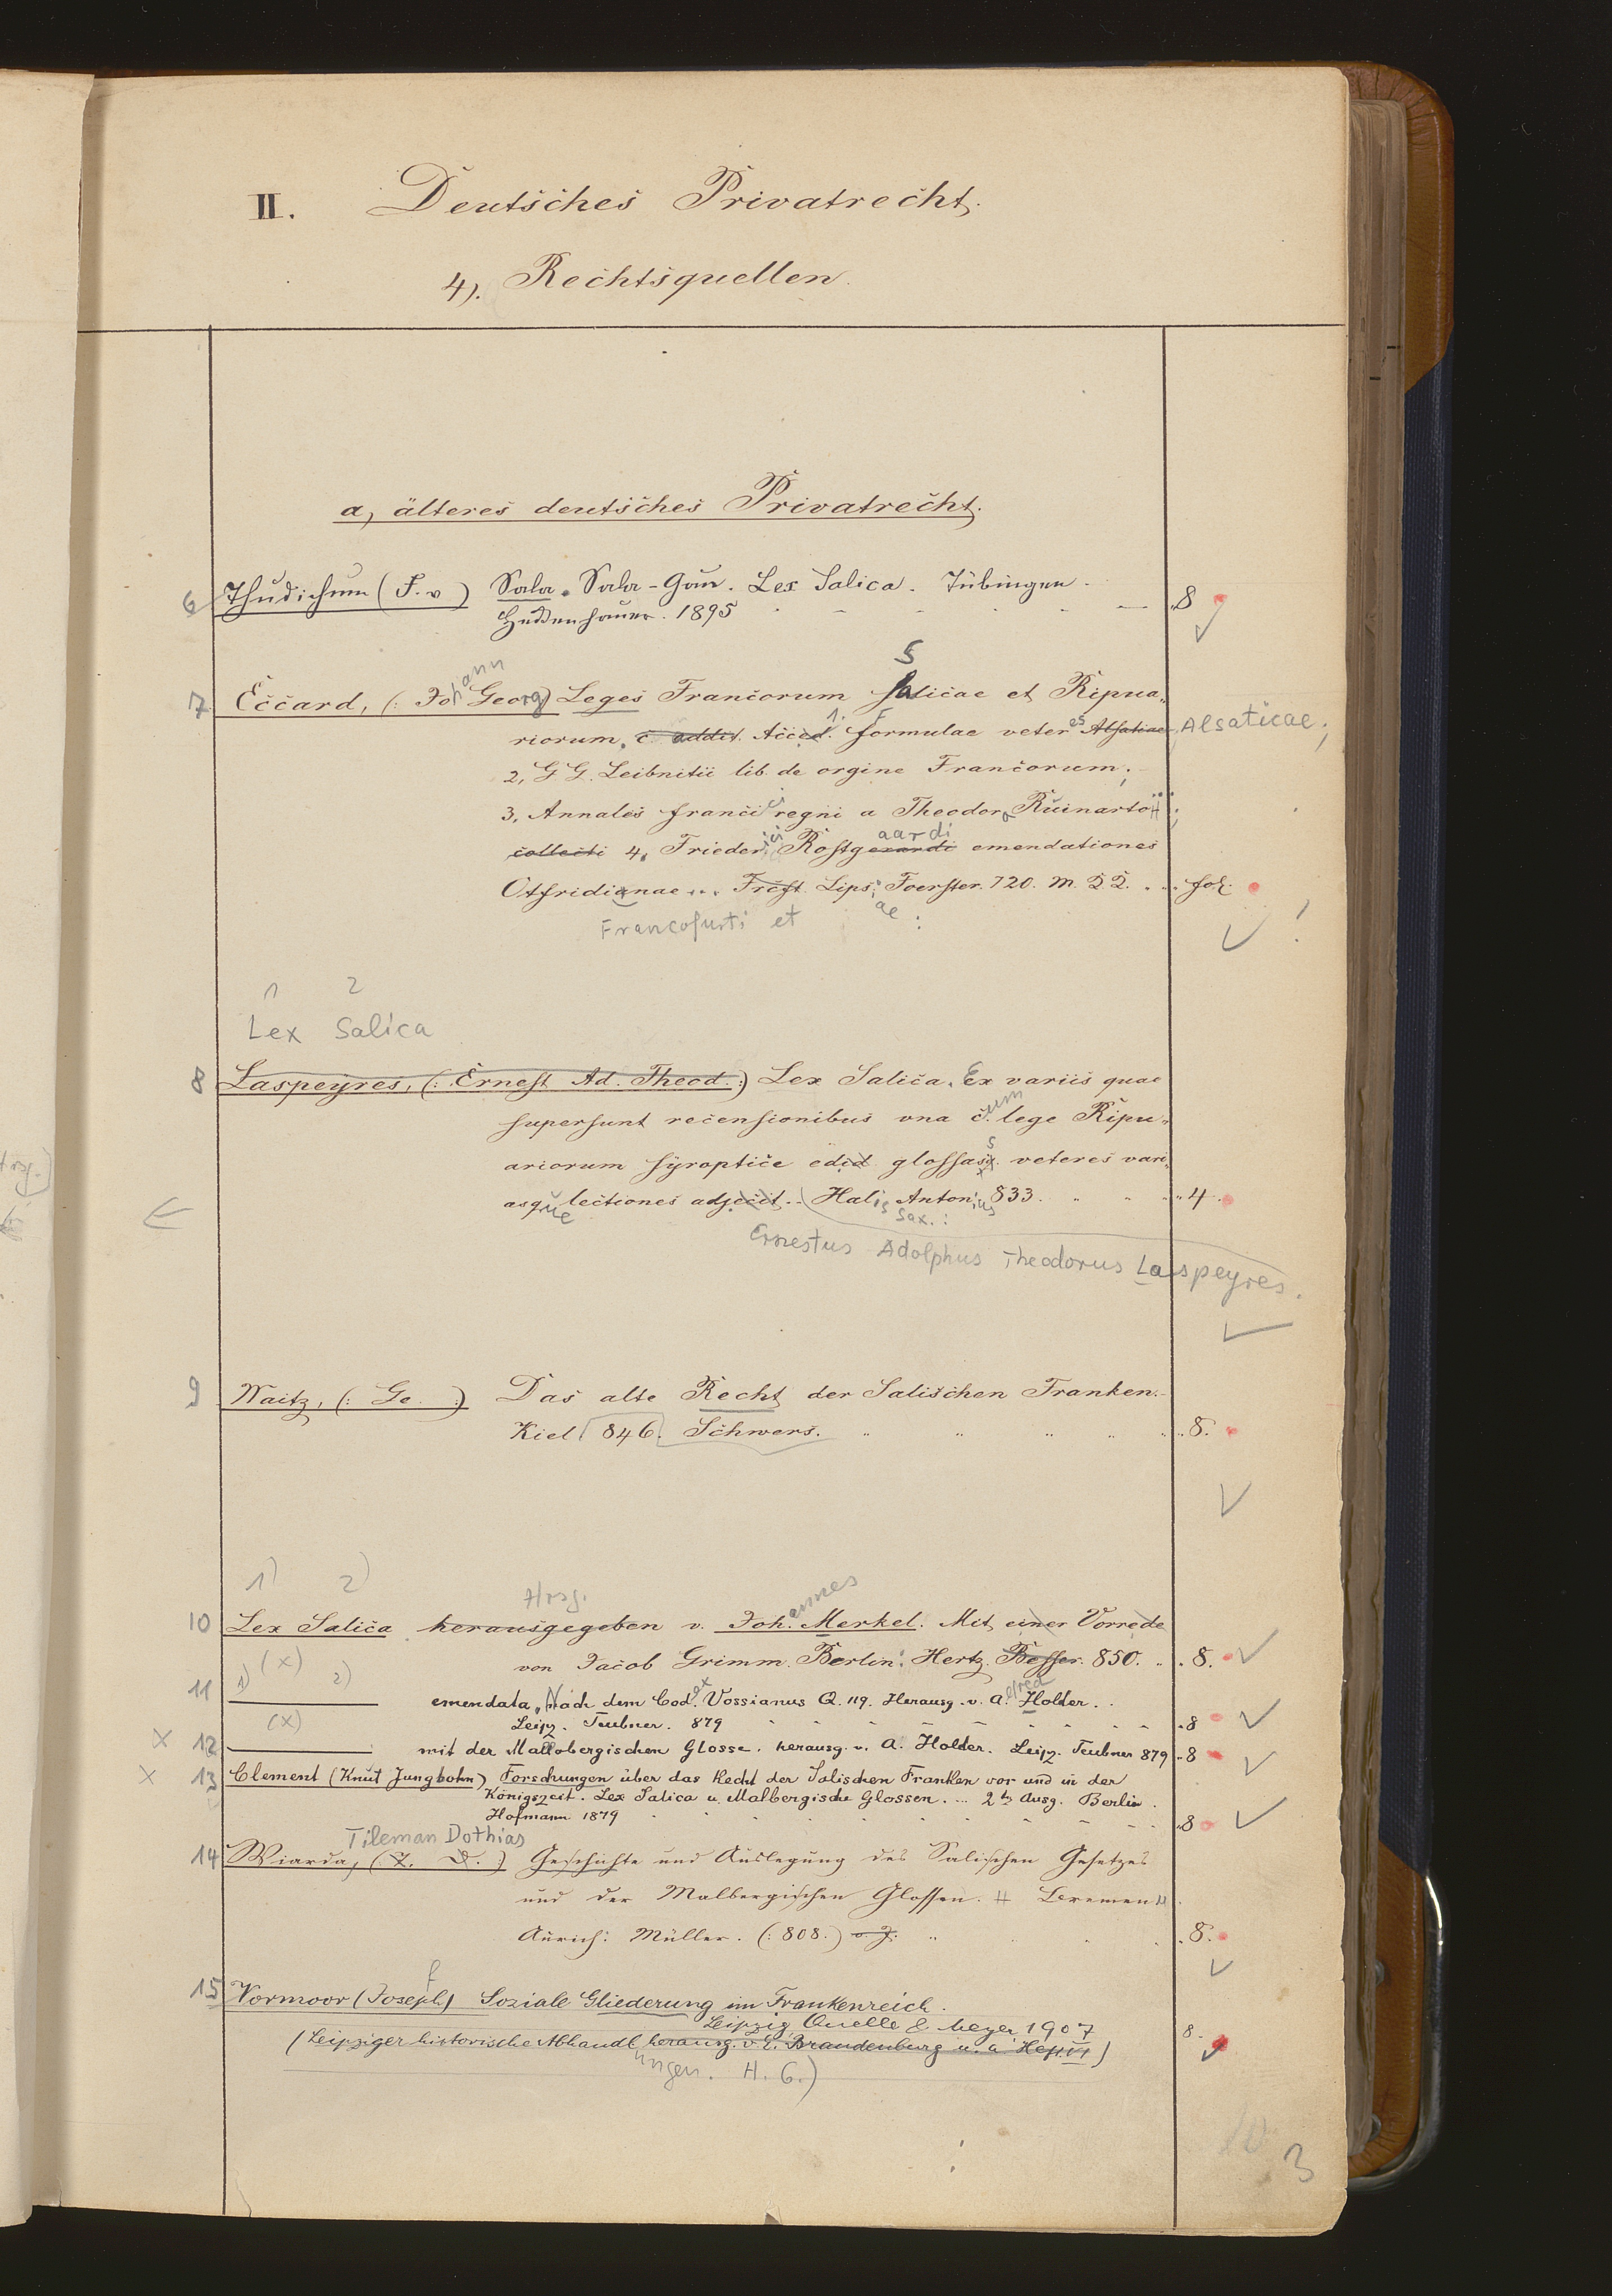 II. Deutsches Privatrecht.
4). Rechtsquellen.
a, älteres deutsches Privatrecht.
6 Thudichum (F. v) Sala. Sala-Gau. Lex Salica. Tübingen. 8
1895
7 Eccard, (: Johann Georg) Leges Francorum Salicae et Ripua-
riorum. c. addit. Acced. 1. Formulae veteres Alsatiae Alsaticae;
2, G G. Leibnitii lib de orgine Francorum;
3. Annales francici regni a Theodoro Ruinarto;
collecti 4. Friederici Rostgaardi emendationes
Otfridianae... Frcft Lips: Foerster. 720. M. fol.
Francofurti et ae :
1 2
Lex Salica
8 Laspeyres, (: Ernest Ad. Theod. :) Lex Salica. Ex variis quae
supersunt recensionibus una c.um lege Ripu-
ariorum syroptice edid glossas veteres vari-
asque lectiones adjecit. Halis Antonius 833. 4.
Sax. :
Ernestus Adolphus Theodorus Laspeyres.
9 Waitz, (: Ge. :) Das alte Recht der Salischen Franken.
Kiel 846. Schwers. 8.
1) 2) Hrsg.
10 Lex Salica herausgegeben v. Johannes Merkel. Mit einer Vorrede
von Jacob Grimm. Berlin: Hertz. Besser. 850. 8.
(x) 1) 2)
11 emendata, Nach dem Cod.ex Vossianus Q. 119. Herausg. v. Alfred Holder.
Leipz. Teubner. 879 8
(x)
x 12 mit der Mallobergischen Glosse. herausg. v. A. Holder. Leipz. Teubner 879 8
x 13 Clement (Knut Jungbohn) Forschungen über das Recht der Salischen Franken vor und in der
Königszeit. Lex Salica u. Malbergische Glossen. ... 2te Ausg. Berlin.
Hofmann 1879 8
Tileman Dothias
14 Wiarda, (T. D. :) Geschichte und Auslegung des Salischen Gesetzes
und der Malbergischen Glossen. Bremen
Aurich: Müller. (: 808.) o. J. 8.
15 Vormoor (Joseph) f Soziale Gliederung im Frankenreich.
Leipzig Quelle & Meyer 1907 8.
(Leipziger historische Abhandl herausg. v. E. Brandenburg u. a Heft VI)
ungen. H. 6.)
3